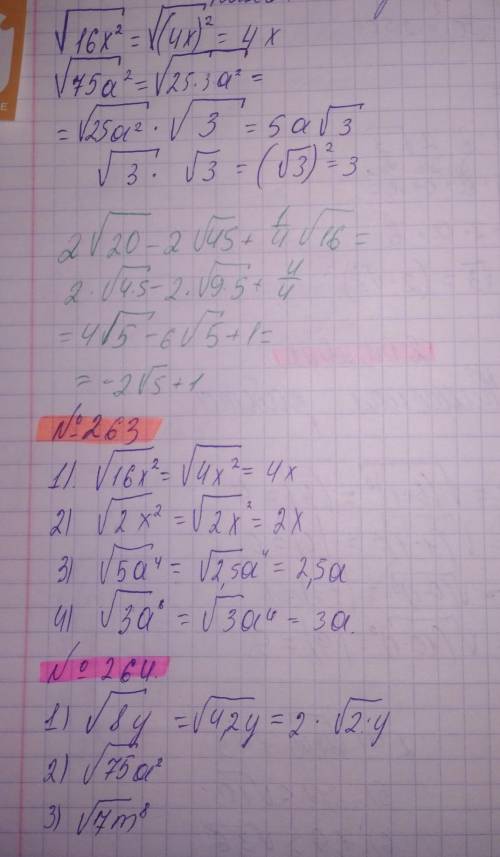 √16x² = √(4x)² = 4x
√75a² = √25·3a² =
= √25a² · √3 = 5a√3
√3 · √3 = (√3)² = 3
2√20 - 2√45 + 1/4 √16 =
2·√4·5 - 2·√9·5 + 4/4
= 4√5 - 6√5 + 1 =
= -2√5 + 1
№263
1). √16x² = √4x² = 4x
2) √2x² = √2x² = 2x
3) √5a⁴ = √2,5a⁴ = 2,5a
4) √3a⁸ = √3a⁴ = 3a.
№264.
1) √8y = √4,2y = 2·√2·y
2) √75a²
3) √7m⁸